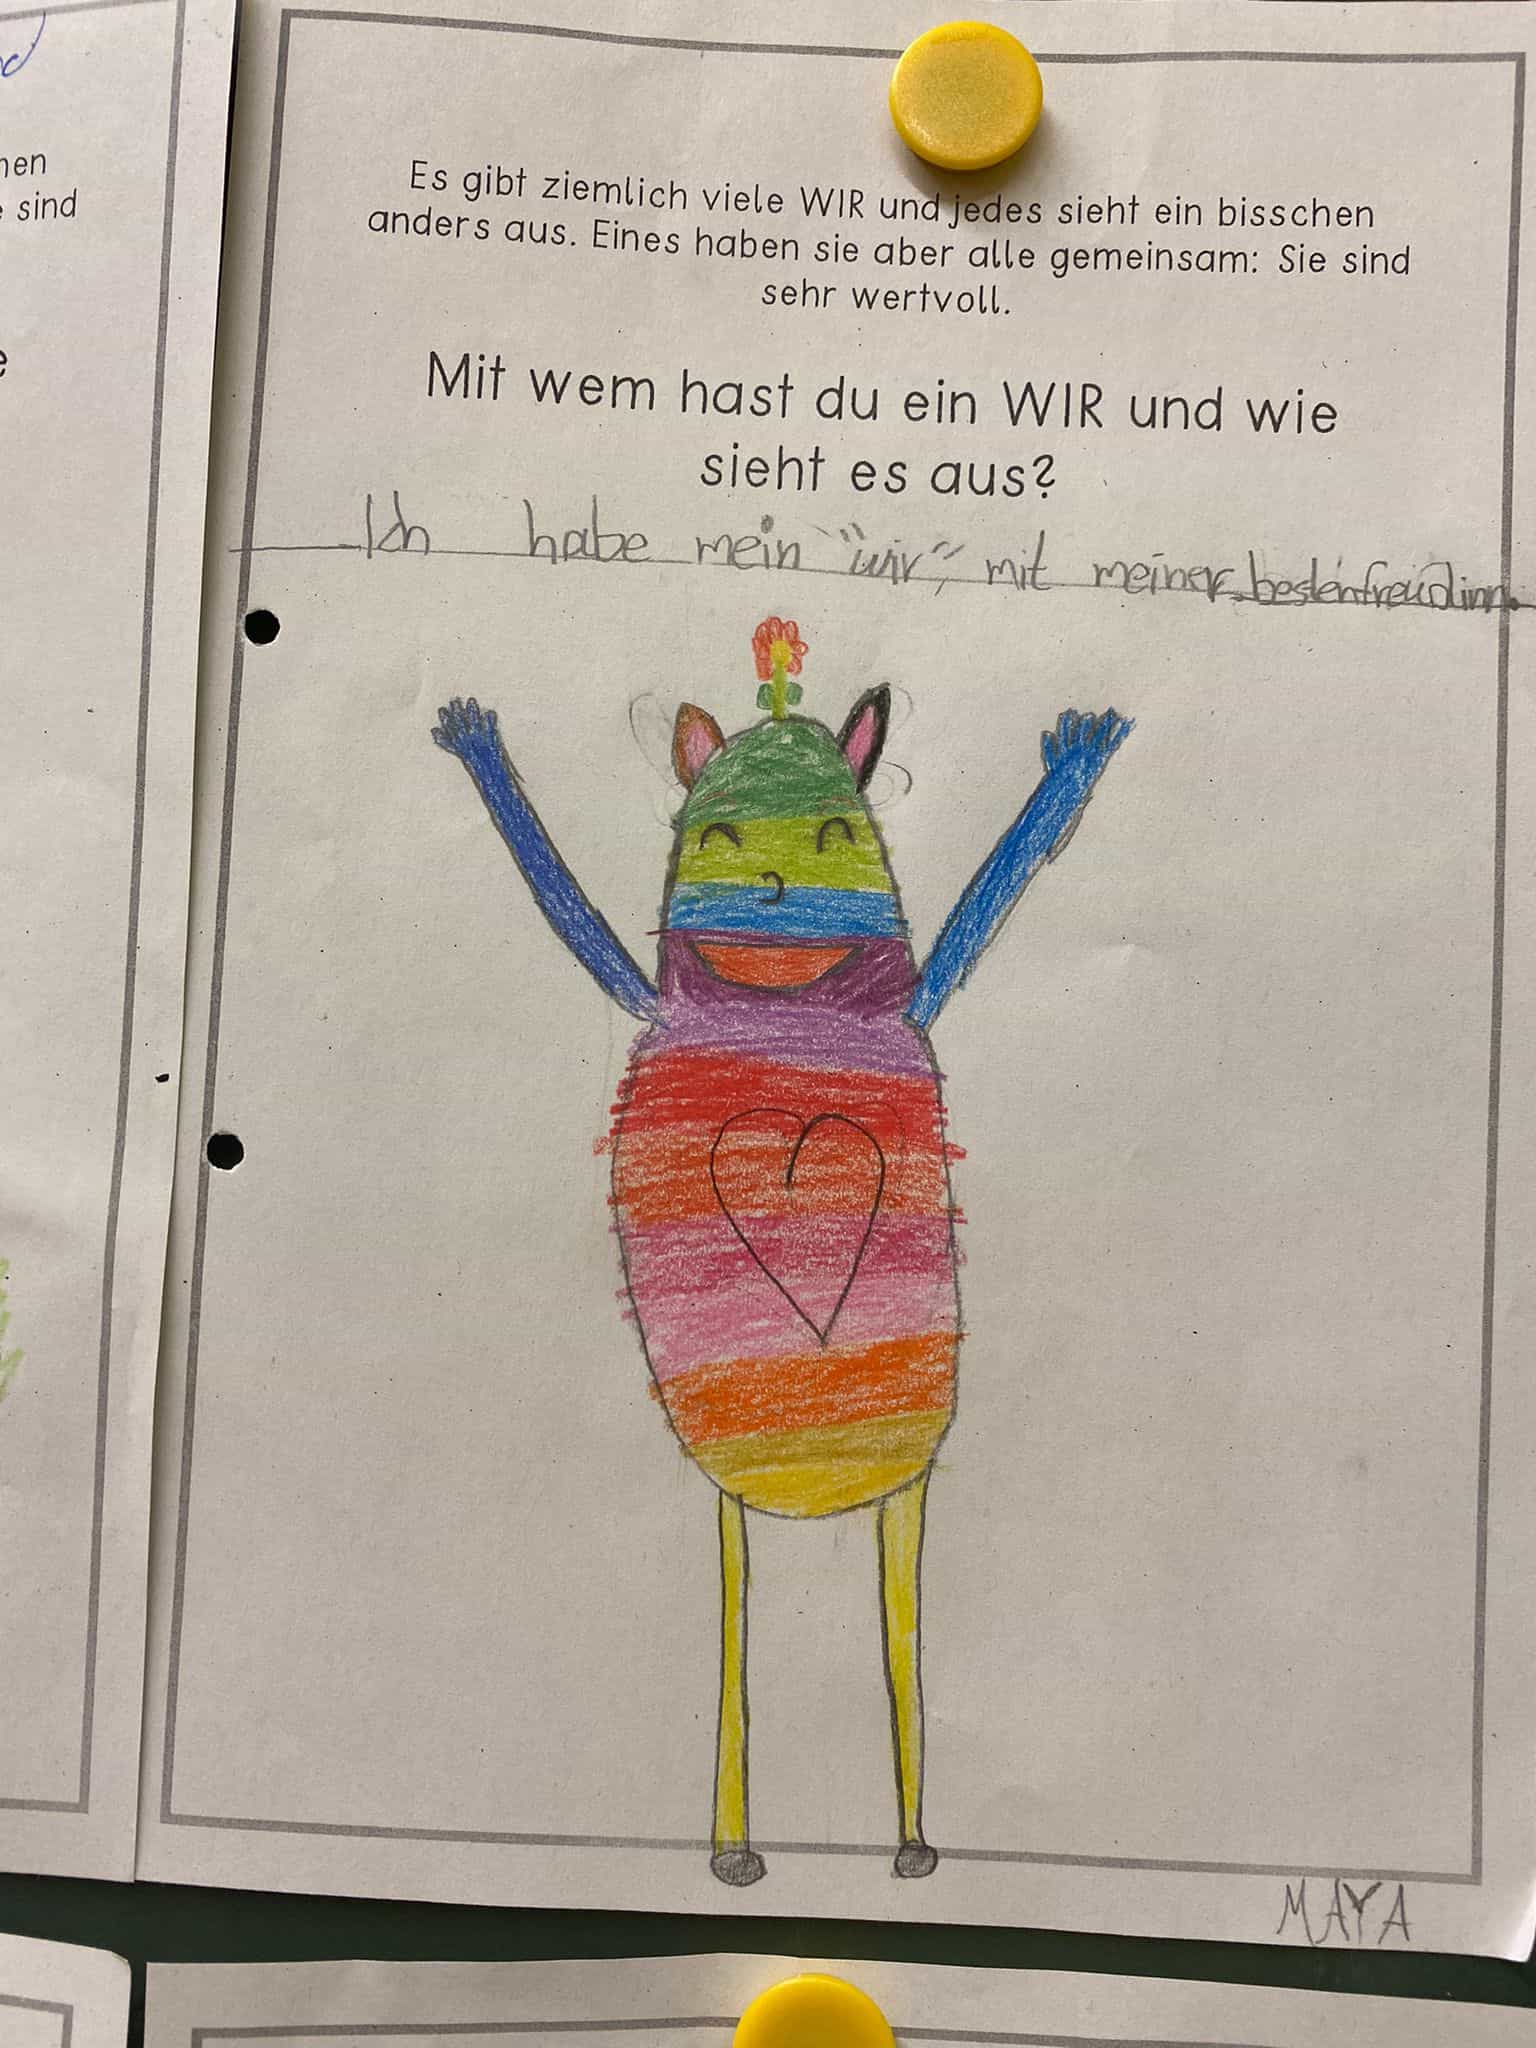 nen
sind
e
Es gibt ziemlich viele WIR und jedes sieht ein bisschen
anders aus. Eines haben sie aber alle gemeinsam: Sie sind
sehr wertvoll.
Mit wem hast du ein WIR und wie
sieht es aus?
Ich habe mein "wir" mit meiner bestenfreudinn.
MAYA